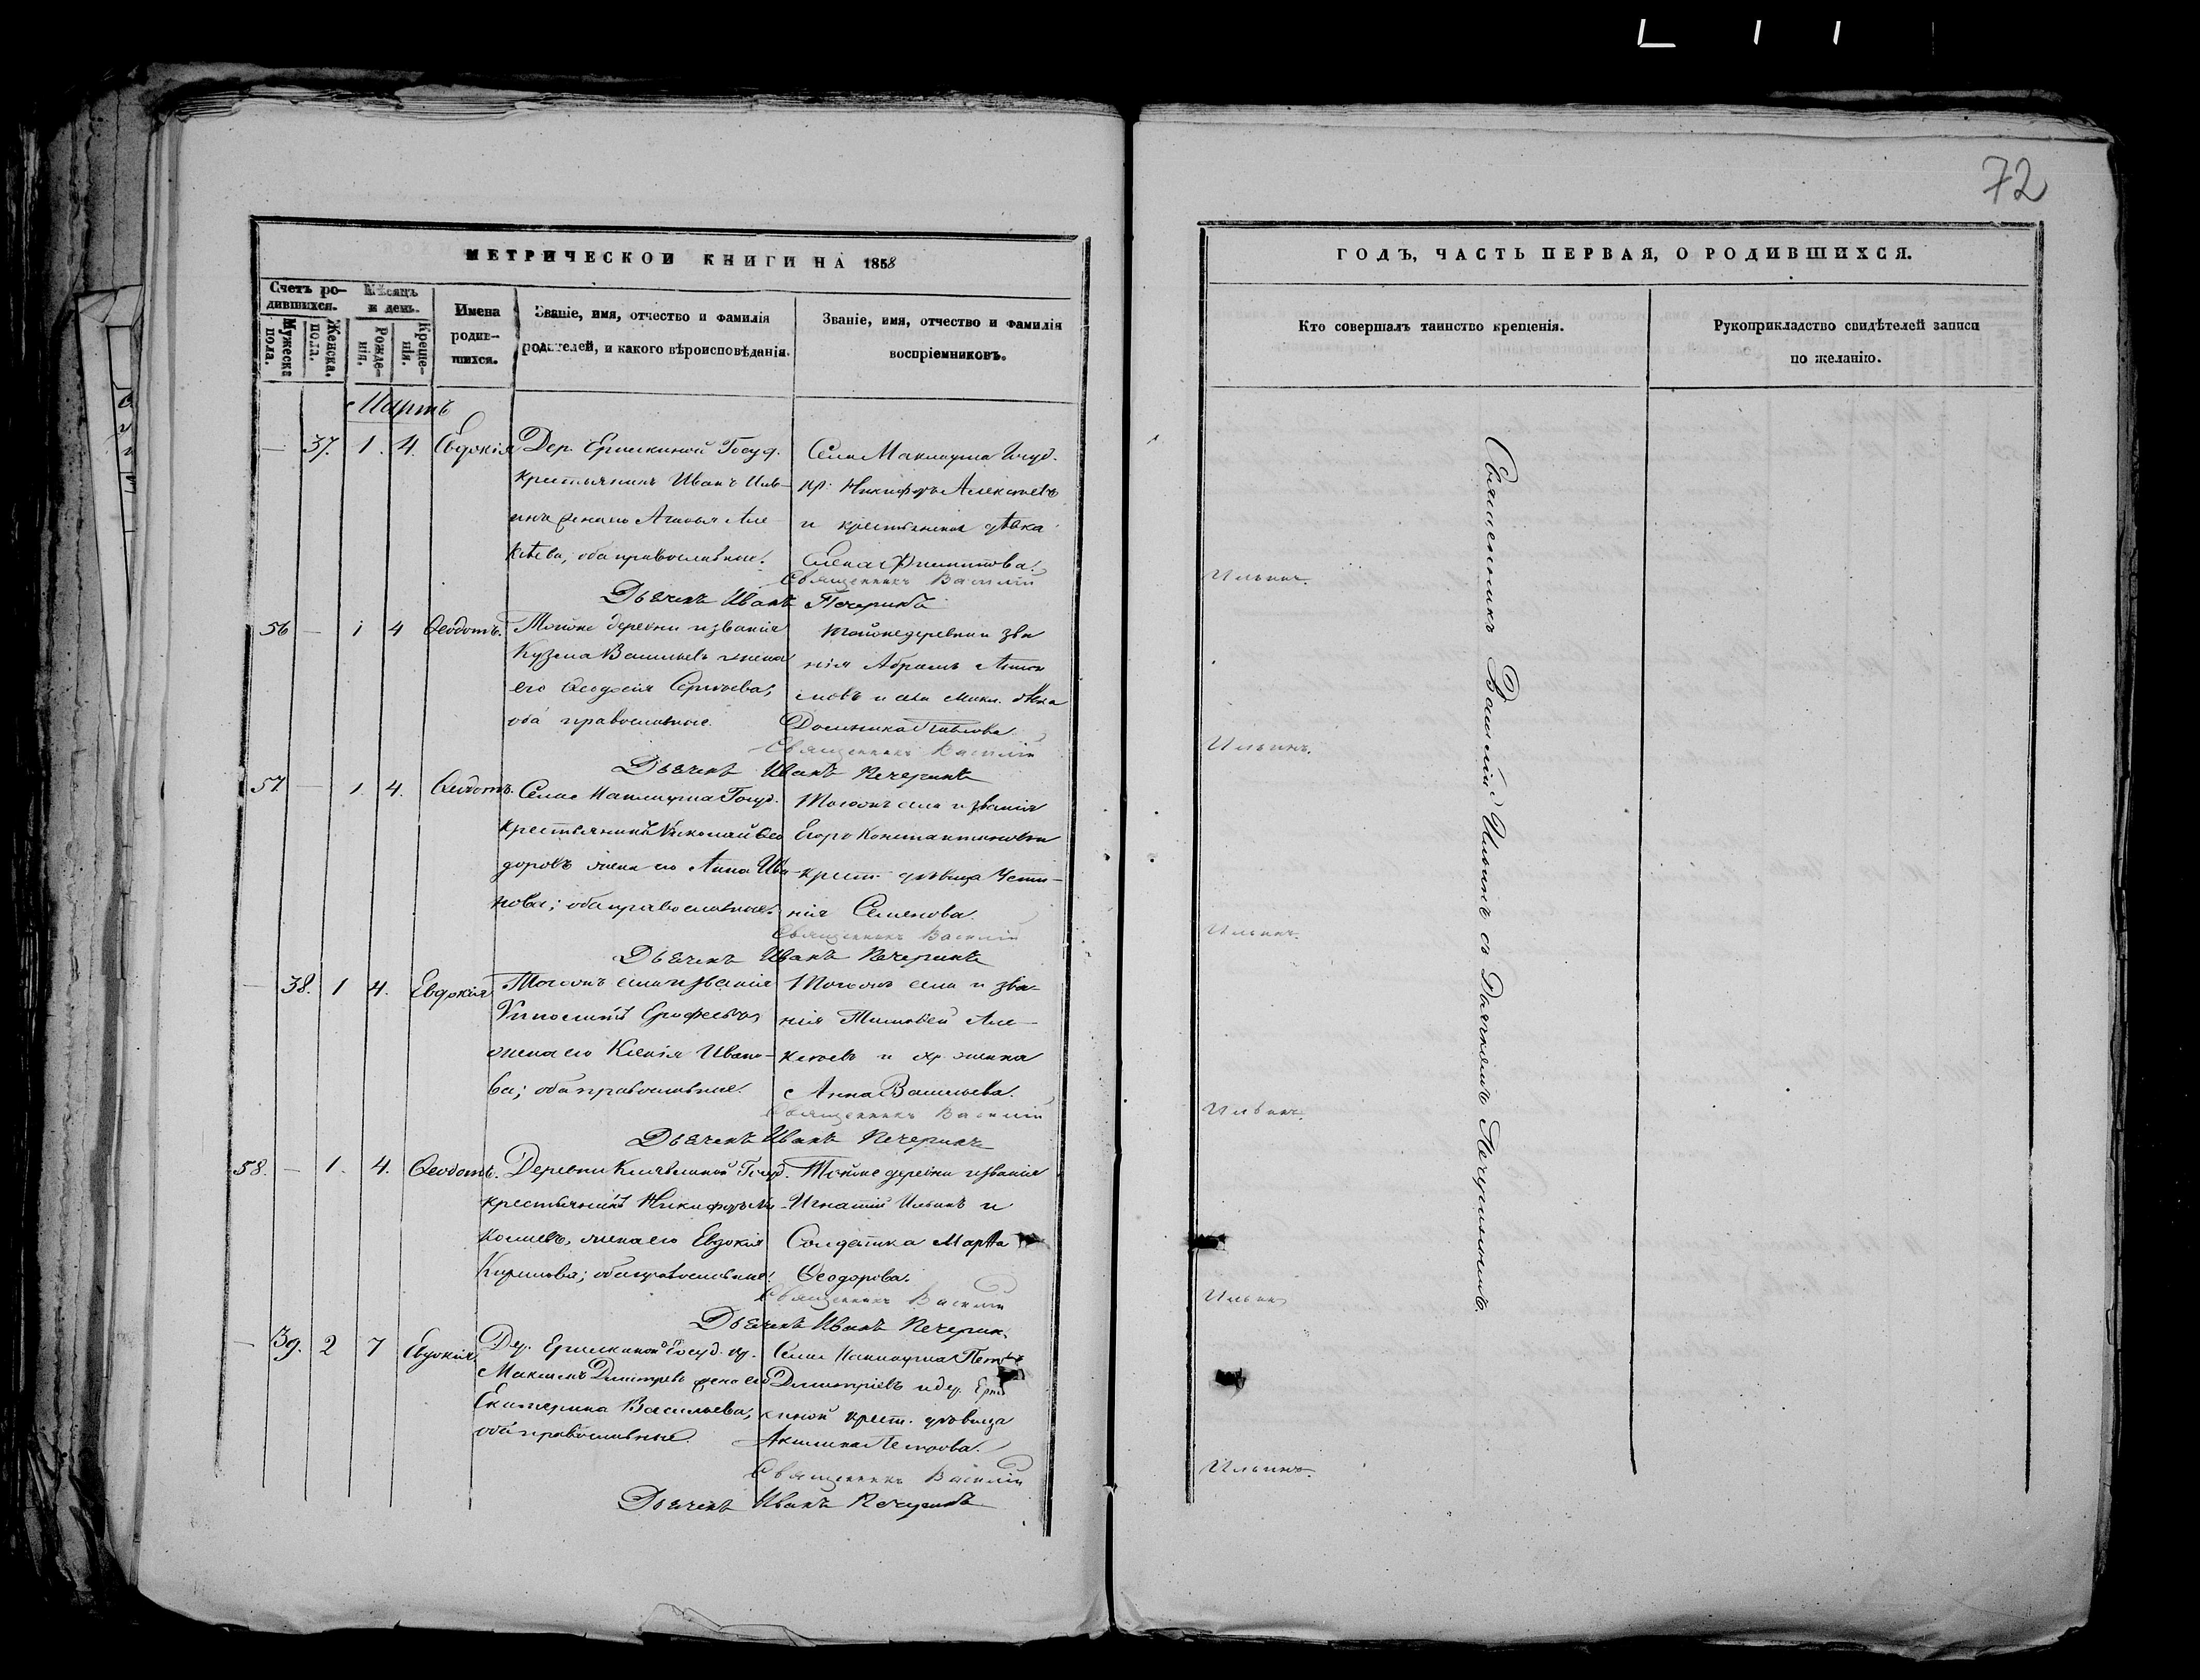 72
МЕТРИЧЕСКОЙ КНИГИ НА 1858
ГОДЪ, ЧАСТЬ ПЕРВАЯ, О РОДИВШИХСЯ.
Счетъ ро-
дившихся.
Мужеска
пола.
Женска.
пола.
Мѣсяцъ
и день.
Рожде-
нія.
Креще-
нія.
Имена
родив-
шихся.
Званіе, имя, отчество и фамилія
родителей, и какого вѣроисповѣданія.
Званіе, имя, отчество и фамилія
воспріемниковъ.
Кто совершалъ таинство крещенія.
Рукоприкладство свидѣтелей записи
по желанію.
Мартъ
— 37. 1. 4. Евдокія
Дер. Госуд.
крестьянинъ Иванъ Иль-
инъ жена его Але-
ксѣева, оба православные.
Села Маклауша Госуд.
кр: Никифоръ Алексѣевъ
и крестьянская дѣвка
Елена Филипова.
Священникъ Василій
Ильинъ.
Дьячекъ Иванъ Печеринъ
56 — 1 4 Ѳеодотъ.
Тойже деревни и званія
Кузма Васильевъ жена
его Ѳеодосія Сергѣева,
оба православные.
тойже деревни и зва
нія Абрамъ
и села Макл. дѣвка
Домника Павлова
Священникъ Василій
Ильинъ.
Дьячекъ Иванъ Печеринъ
57 — 1. 4. Ѳеодотъ.
Села Маклауша Госуд.
крестьянинъ Николай Ѳео
доровъ жена его Анна Ива-
нова; оба православные.
Тогожъ села и званія
Егоръ Константиновъ и
крест. дѣвица Усти-
нія Семенова.
Священникъ Василій
Ильинъ.
Дьячекъ Иванъ Печеринъ
— 38. 1 4. Евдокія
Тогожъ села и званія
Ипполитъ Ерофеевъ,
жена его Ксенія Ивано-
ва; оба православные.
Тогожъ села и зва-
нія Тимоѳей Але-
ксѣевъ и кр женка
Анна Васильева.
Священникъ Василій
Ильинъ.
Дьячекъ Иванъ Печеринъ
58. — 1. 4. Ѳеодотъ.
Деревни Госуд.
крестьянинъ Никифоръ Ни
жена его Евдокія
Кирилова; оба православные.
Тойже деревни и званія
Игнатій Ильинъ и
Солдатка Марѳа
Ѳеодорова.
Священникъ Василій
Ильинъ
Дьячекъ Иванъ Печерин.
— 39. 2 7 Евдокія.
Дер. Госуд. кр.
Максимъ Димитріевъ жена его
Екатерина Васильева,
оба православные.
Села Маклауша Петръ
Димитріевъ и дер.
киной крест. дѣвица
Акилина Петрова.
Священникъ Василій
Ильинъ.
Дьячекъ Иванъ Печеринъ
Священникъ Василій Ильинъ съ Дьячкомъ Печеринымъ.